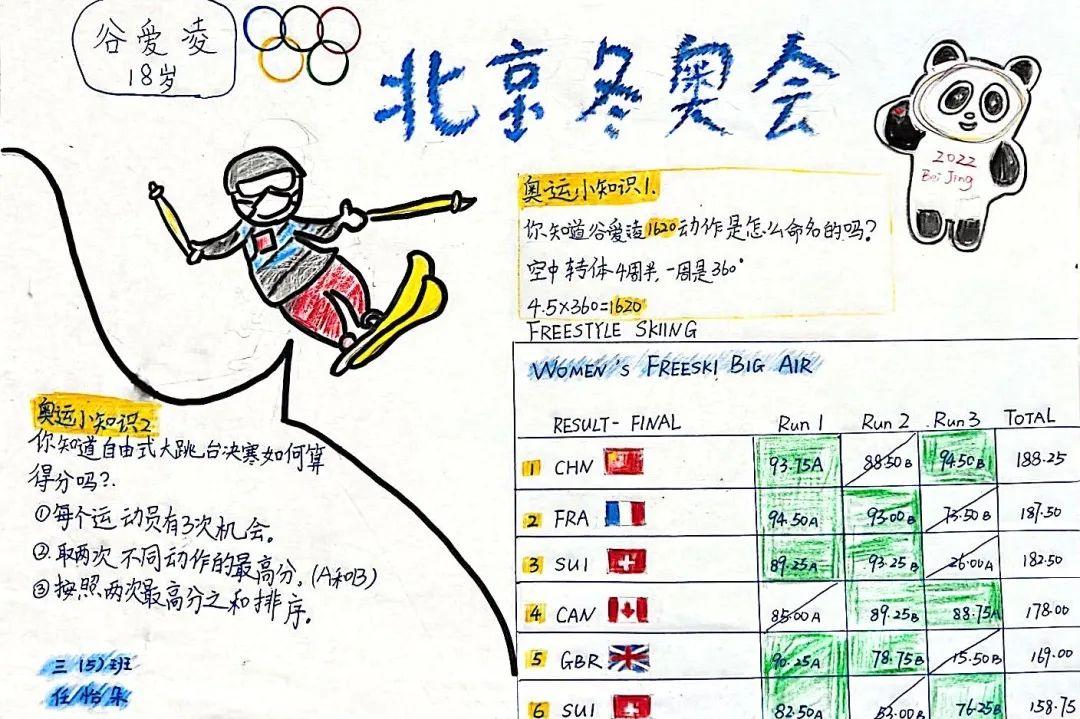 谷爱凌
18岁
北京冬奥会
2022
Bei Jing
奥运小知识1.
你知道谷爱凌1620动作是怎么命名的吗?
空中转体4周半,一周是360°
4.5×360=1620
FREESTYLE SKIING
WOMEN'S FREESKI BIG AIR
RESULT- FINAL Run 1 Run 2 Run 3 TOTAL
1 CHN 93.75A 88.50B 94.50B 188.25
2 FRA 94.50A 93.00B 73.50B 187.50
3 SUI 89.25A 93.25B 26.00A 182.50
4 CAN 85.00A 89.25B 88.75A 178.00
5 GBR 90.25A 78.75B 15.50B 169.00
6 SUI 82.50A 53.00B 76.25B 158.75
奥运小知识2
你知道自由式大跳台决赛如何算
得分吗?
①每个运动员有3次机会。
②取两次不同动作的最高分,(A和B)
③按照两次最高分之和排序。
三(5)班
任怡朵